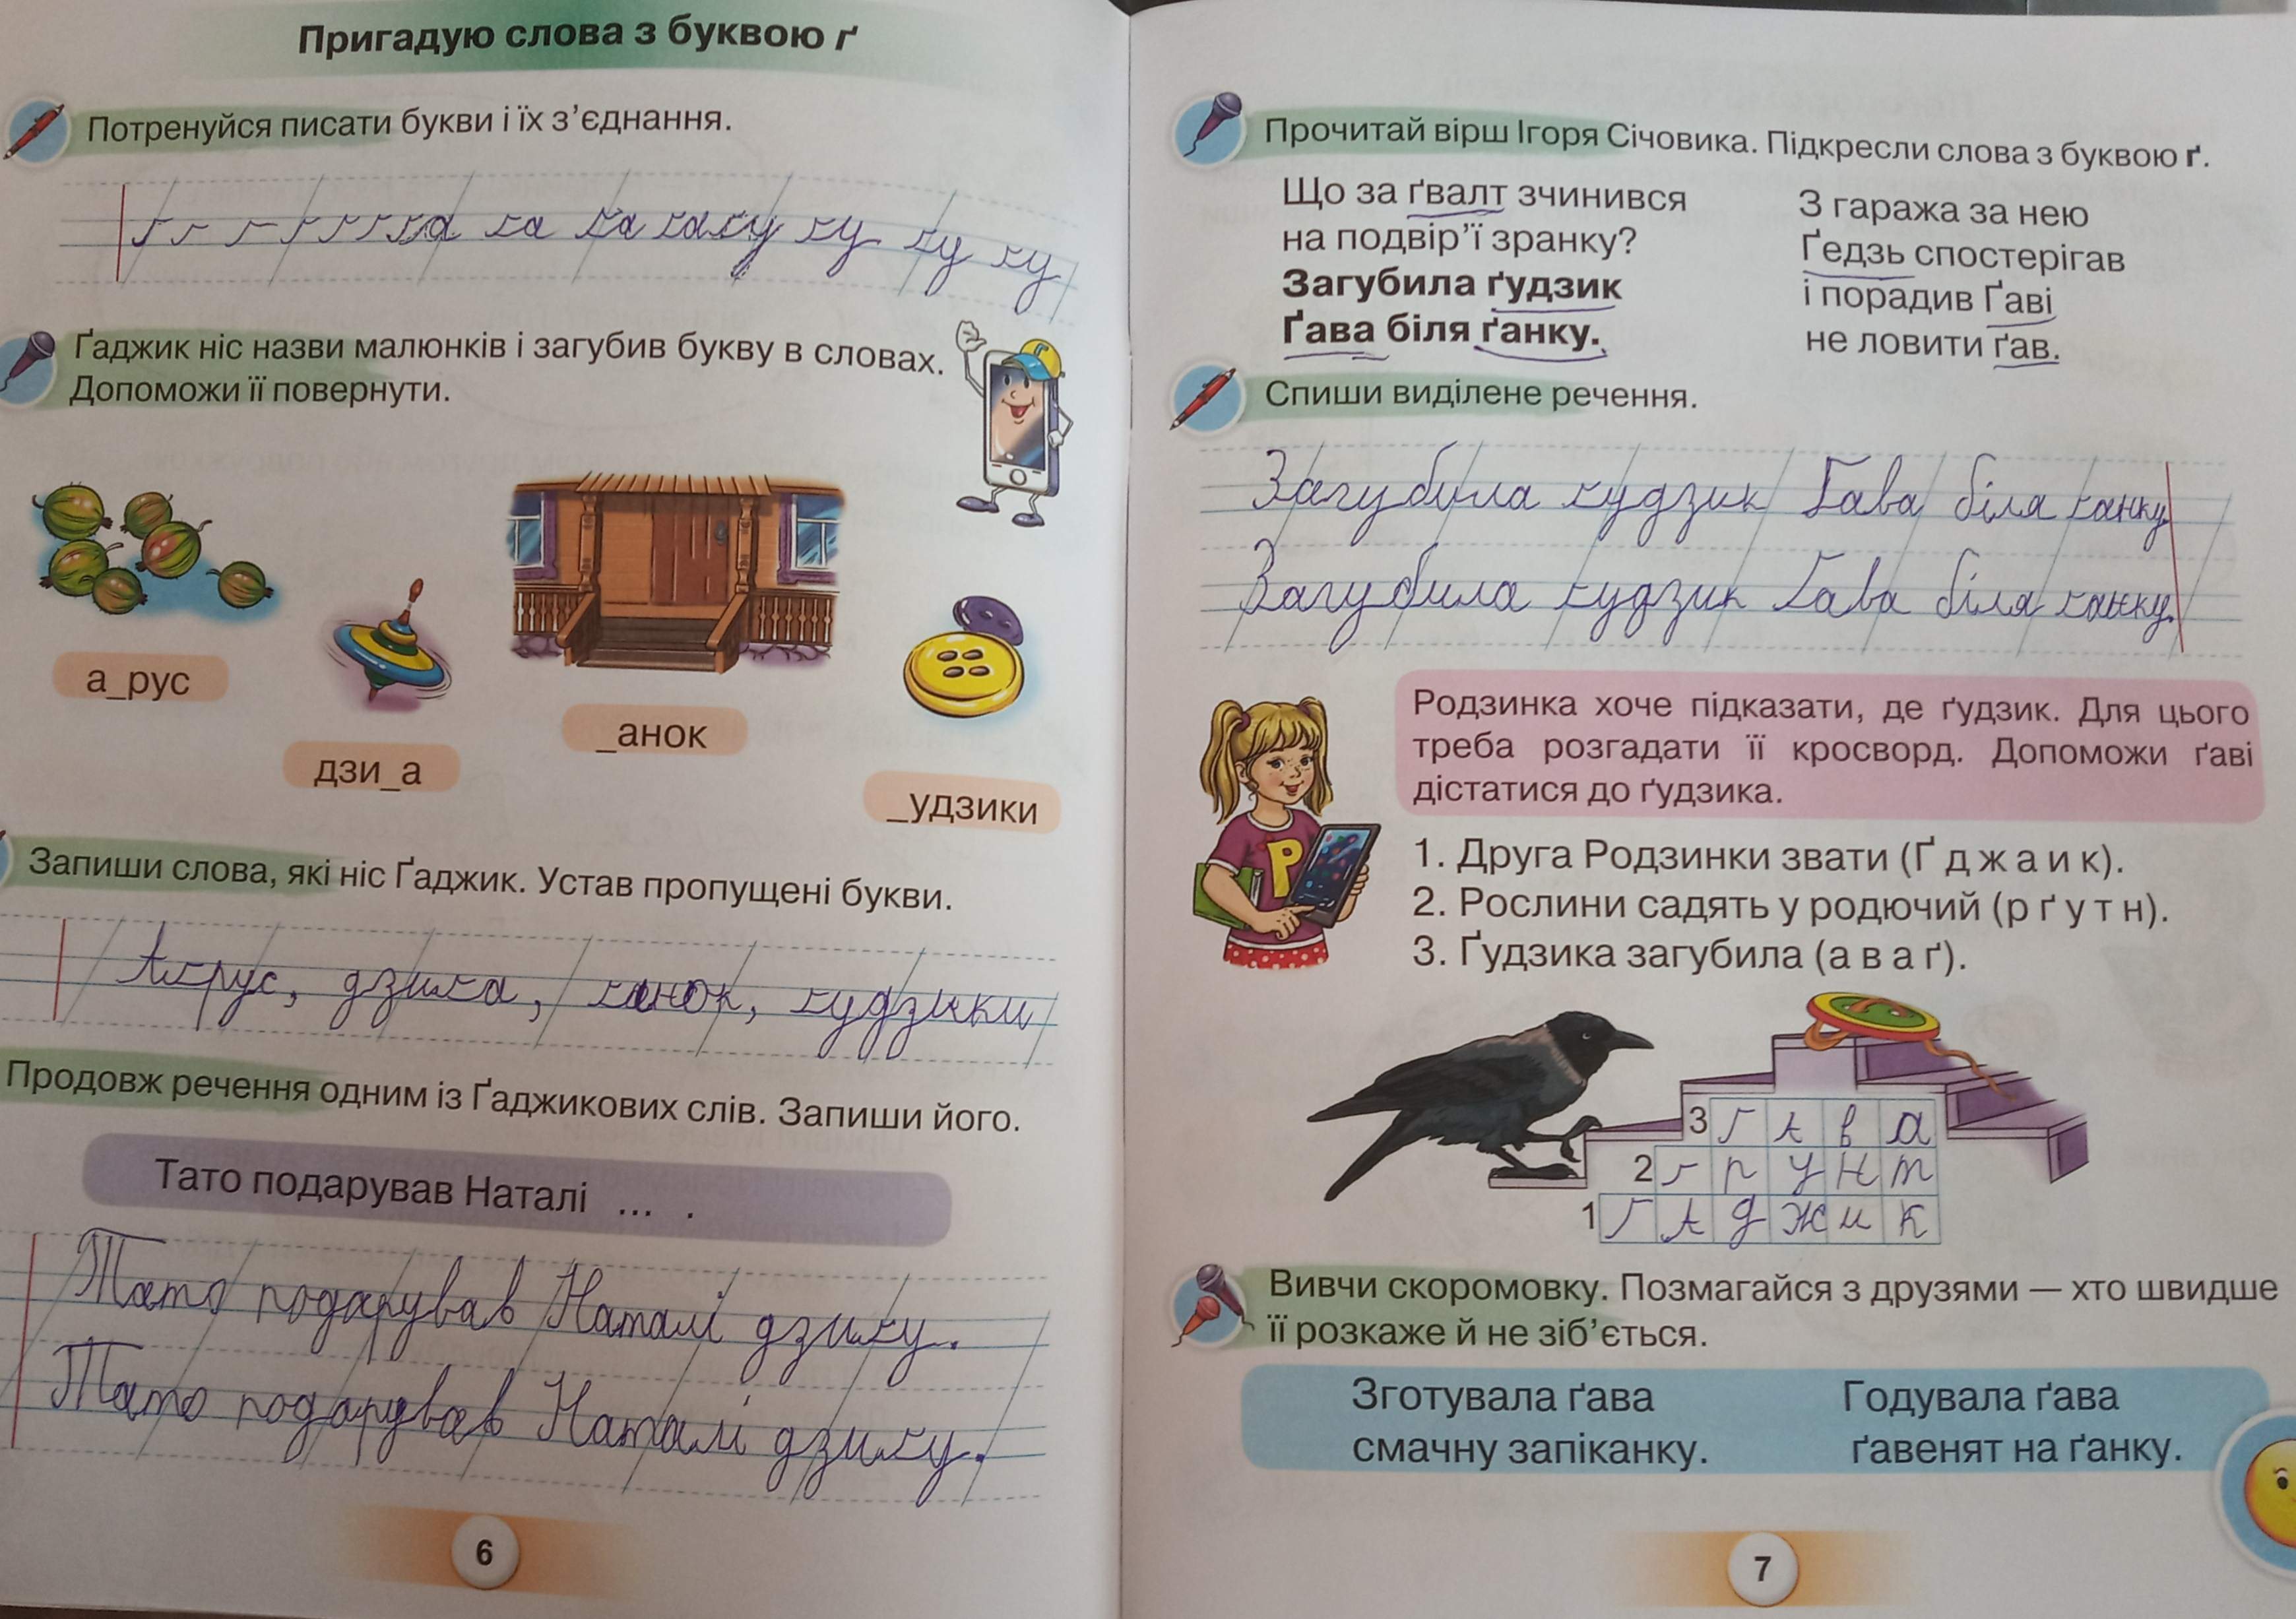 Пригадую слова з буквою ґ
Потренуйся писати букви і їх з’єднання.
ґ ґ ґ ґ ґ ґ ґа ґа ґа ґа ґу ґу ґу ґу
Ґаджик ніс назви малюнків і загубив букву в словах.
Допоможи її повернути.
а_рус
дзи_а
_анок
_удзики
Запиши слова, які ніс Ґаджик. Устав пропущені букви.
Аґрус, дзиґа, ґанок, ґудзики
Продовж речення одним із Ґаджикових слів. Запиши його.
Тато подарував Наталі ... .
Тато подарував Наталі дзиґу.
Тато подарував Наталі дзиґу.
6
Прочитай вірш Ігоря Січовика. Підкресли слова з буквою ґ.
Що за ґвалт зчинився
на подвір’ї зранку?
Загубила ґудзик
Ґава біля ґанку.
З гаража за нею
Ґедзь спостерігав
і порадив Ґаві
не ловити ґав.
Спиши виділене речення.
Загубила ґудзик Ґава біля ґанку
Загубила ґудзик Ґава біля ґанку.
Родзинка хоче підказати, де ґудзик. Для цього
треба розгадати її кросворд. Допоможи ґаві
дістатися до ґудзика.
Р
1. Друга Родзинки звати (Ґ д ж а и к).
2. Рослини садять у родючий (р ґ у т н).
3. Ґудзика загубила (а в а ґ).
3 Ґ А в а
2 ґ р у н т
1 Ґ А д ж и к
Вивчи скоромовку. Позмагайся з друзями — хто швидше
її розкаже й не зіб’ється.
Зготувала ґава
смачну запіканку.
Годувала ґава
ґавенят на ґанку.
7